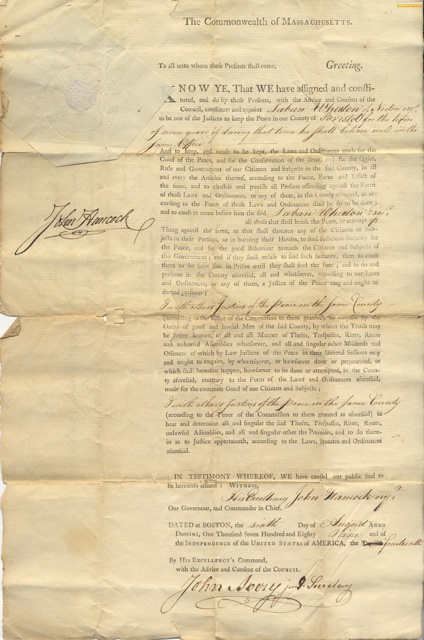 The Commonwealth of MASSACHUSETTS.
To all unto whom these Presents shall come, Greeting.
KNOW YE, That WE have assigned and consti-
tuted, and do by these Presents, with the Advice and Consent of the
Council, constitute and appoint Laban Wheaton of Norton Esqr.
to be one of the Justices to keep the Peace in our County of Bristol for the term
of seven years if during that time he shall behave well in the
same Office
And to keep, and cause to be kept, the Laws and Ordinances made for the
Good of the Peace, and for the Conservation of the same, and for the Quiet,
Rule and Government of our Citizens and Subjects in the said County, in all
and every the Articles thereof, according to the Force, Form and Effect of
the same, and to chastise and punish all Persons offending against the Form
of those Laws and Ordinances, or any of them, in the County aforesaid, as ac-
cording to the Form of those Laws and Ordinances shall be fit to be done;
and to cause to come before him the said Laban Wheaton Esqr.
all those that shall break the Peace, or attempt any
Thing against the same, or that shall threaten any of the Citizens or Sub-
jects in their Persons, or in burning their Houses, to find sufficient Security for
the Peace, and for the good Behaviour towards the Citizens and Subjects of
this Government; and if they shall refuse to find such Security, then to cause
them to be kept safe in Prison until they shall find the same; and to do and
perform in the County aforesaid, all and whatsoever, according to our Laws
and Ordinances, or any of them, a Justice of the Peace may and ought to
do and perform:
John Hancock
& with other Justices of the Peace in the same County
(according to the Tenor of the Commission to them granted) to enquire by the
Oaths of good and lawful Men of the said County, by whom the Truth may
be better known, of all and all Manner of Thefts, Trespasses, Riots, Routs
and unlawful Assemblies whatsoever, and all and singular other Misdeeds and
Offences of which by Law Justices of the Peace in their General Sessions may
and ought to enquire, by whomsoever, or howsoever done or perpetrated, or
which shall hereafter happen, howsoever to be done or attempted, in the Coun-
ty aforesaid, contrary to the Form of the Laws and Ordinances aforesaid,
made for the common Good of our Citizens and Subjects;
& with other Justices of the Peace in the same County
(according to the Tenor of the Commission to them granted as aforesaid) to
hear and determine all and singular the said Thefts, Trespasses, Riots, Routs,
unlawful Assemblies, and all and singular other the Premises, and to do there-
in as to Justice appertaineth, according to the Laws, Statutes and Ordinances
aforesaid.
IN TESTIMONY WHEREOF, WE have caused our public Seal to
be hereunto affixed: WITNESS,
His Excellency John Hancock Esqr.
Our Governour, and Commander in Chief.
DATED at BOSTON, the sixth Day of August ANNO
DOMINI, One Thousand Seven Hundred and Eighty Nine and of
the INDEPENDENCE of the UNITED STATES of AMERICA, the Fourteenth
By HIS EXCELLENCY'S Command,
with the Advice and Consent of the COUNCIL.
John Avery junr Secretary